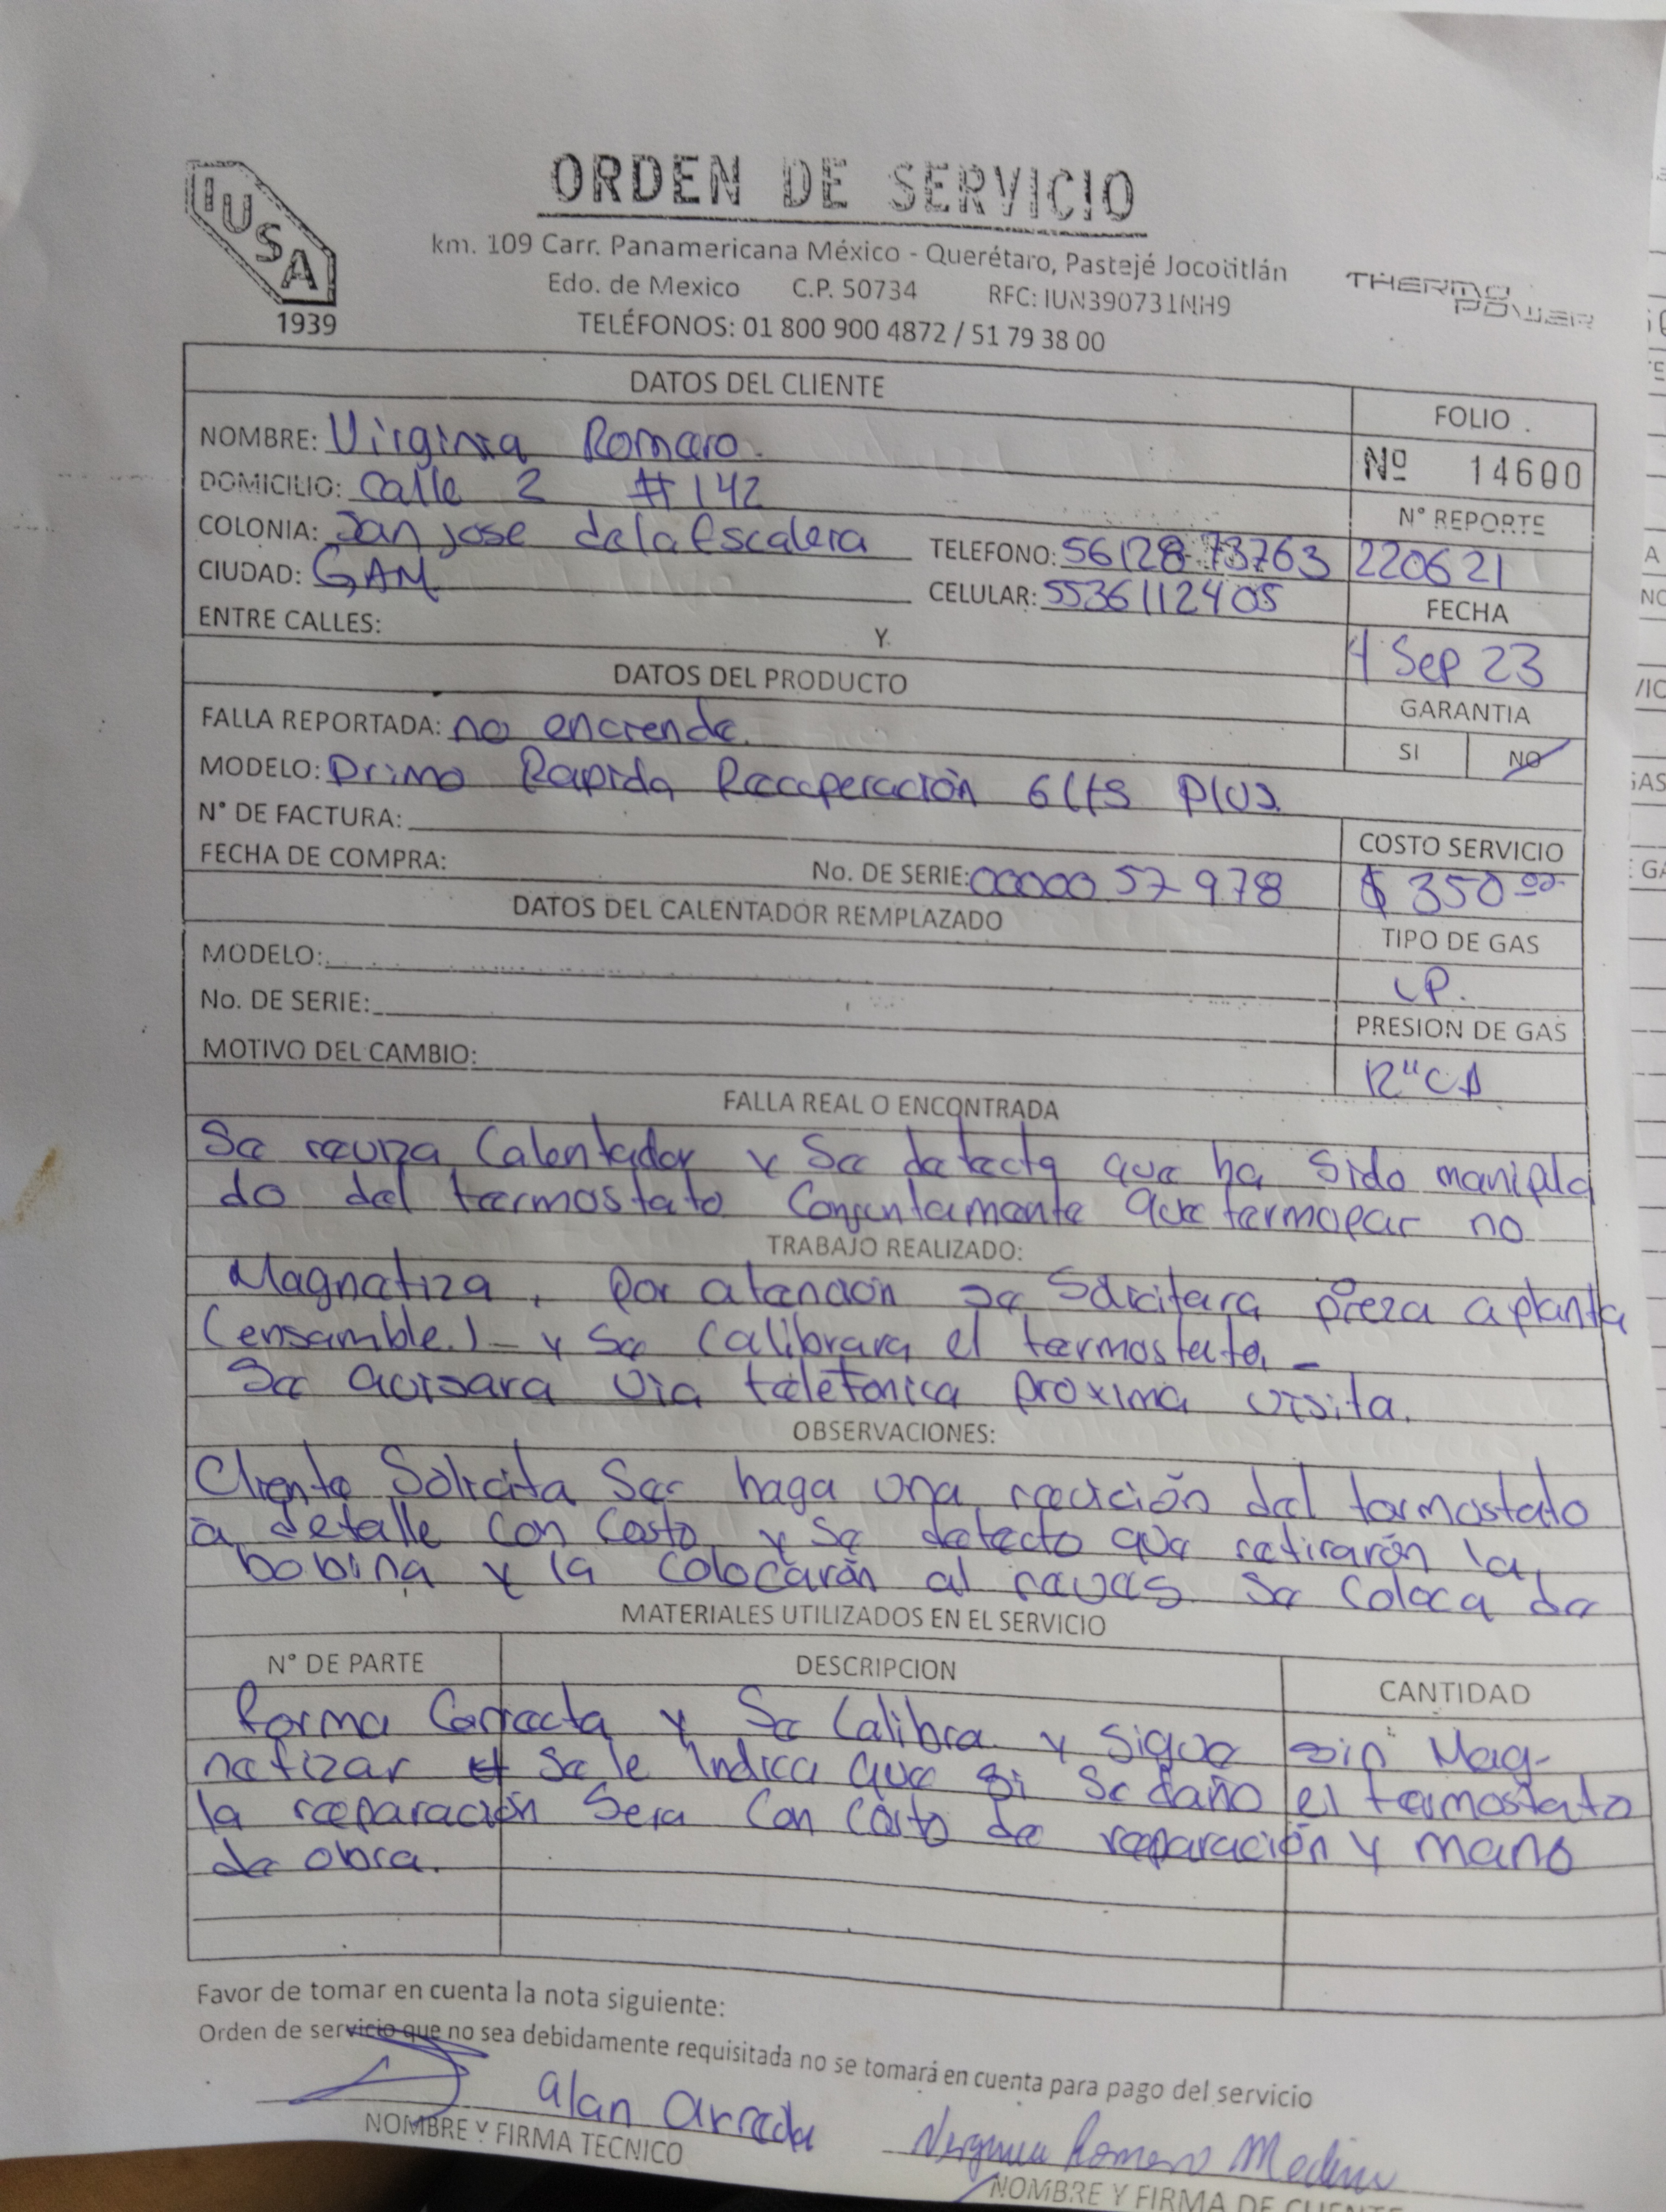 IUSA
1939
ORDEN DE SERVICIO
km. 109 Carr. Panamericana México - Querétaro, Pastejé Jocotitlán
Edo. de Mexico C.P. 50734 RFC: IUN390731NH9
TELÉFONOS: 01 800 900 4872 / 51 79 38 00
THERMO POWER
DATOS DEL CLIENTE
FOLIO
Nº 14600
NOMBRE: Virginia Romero.
DOMICILIO: Calle 2 #142
COLONIA: San Jose de la Escalera TELEFONO: 5612873763
CIUDAD: GAM CELULAR: 5536112405
ENTRE CALLES: Y
N° REPORTE
220621
FECHA
4 Sep 23
DATOS DEL PRODUCTO
GARANTIA
SI NO
FALLA REPORTADA: no enciende.
MODELO: Primo Rapida Recuperación 6lts Plus.
N° DE FACTURA:
FECHA DE COMPRA: No. DE SERIE: 0000057978
COSTO SERVICIO
$350.00
DATOS DEL CALENTADOR REMPLAZADO
TIPO DE GAS
LP.
MODELO:
No. DE SERIE:
MOTIVO DEL CAMBIO:
PRESION DE GAS
12"CA
FALLA REAL O ENCONTRADA
Se revisa Calentador y Se detecta que ha Sido manipula
do del termostato Conjuntamente que termopar no
TRABAJO REALIZADO:
Magnetiza, por atención se Solicitara pieza a planta
(ensamble.) y Se Calibrara el termostato.
Se avisara via telefonica proxima visita.
OBSERVACIONES:
Cliente Solicita Se haga una revición del termostato
a detalle con Costo y Se detecto que retirarón la
bobina y la Colocarán al reves Se Coloca de
MATERIALES UTILIZADOS EN EL SERVICIO
N° DE PARTE DESCRIPCION CANTIDAD
forma Correcta y Se Calibra y sigue sin Mag-
netizar Se le Indica que si Se daño el termostato
la reparación Sera Con Costo de reparación y mano
de obra.
Favor de tomar en cuenta la nota siguiente:
Orden de servicio que no sea debidamente requisitada no se tomará en cuenta para pago del servicio
alan Arreda
NOMBRE Y FIRMA TECNICO
Virginia Romero Medina
NOMBRE Y FIRMA DE CLIENTE